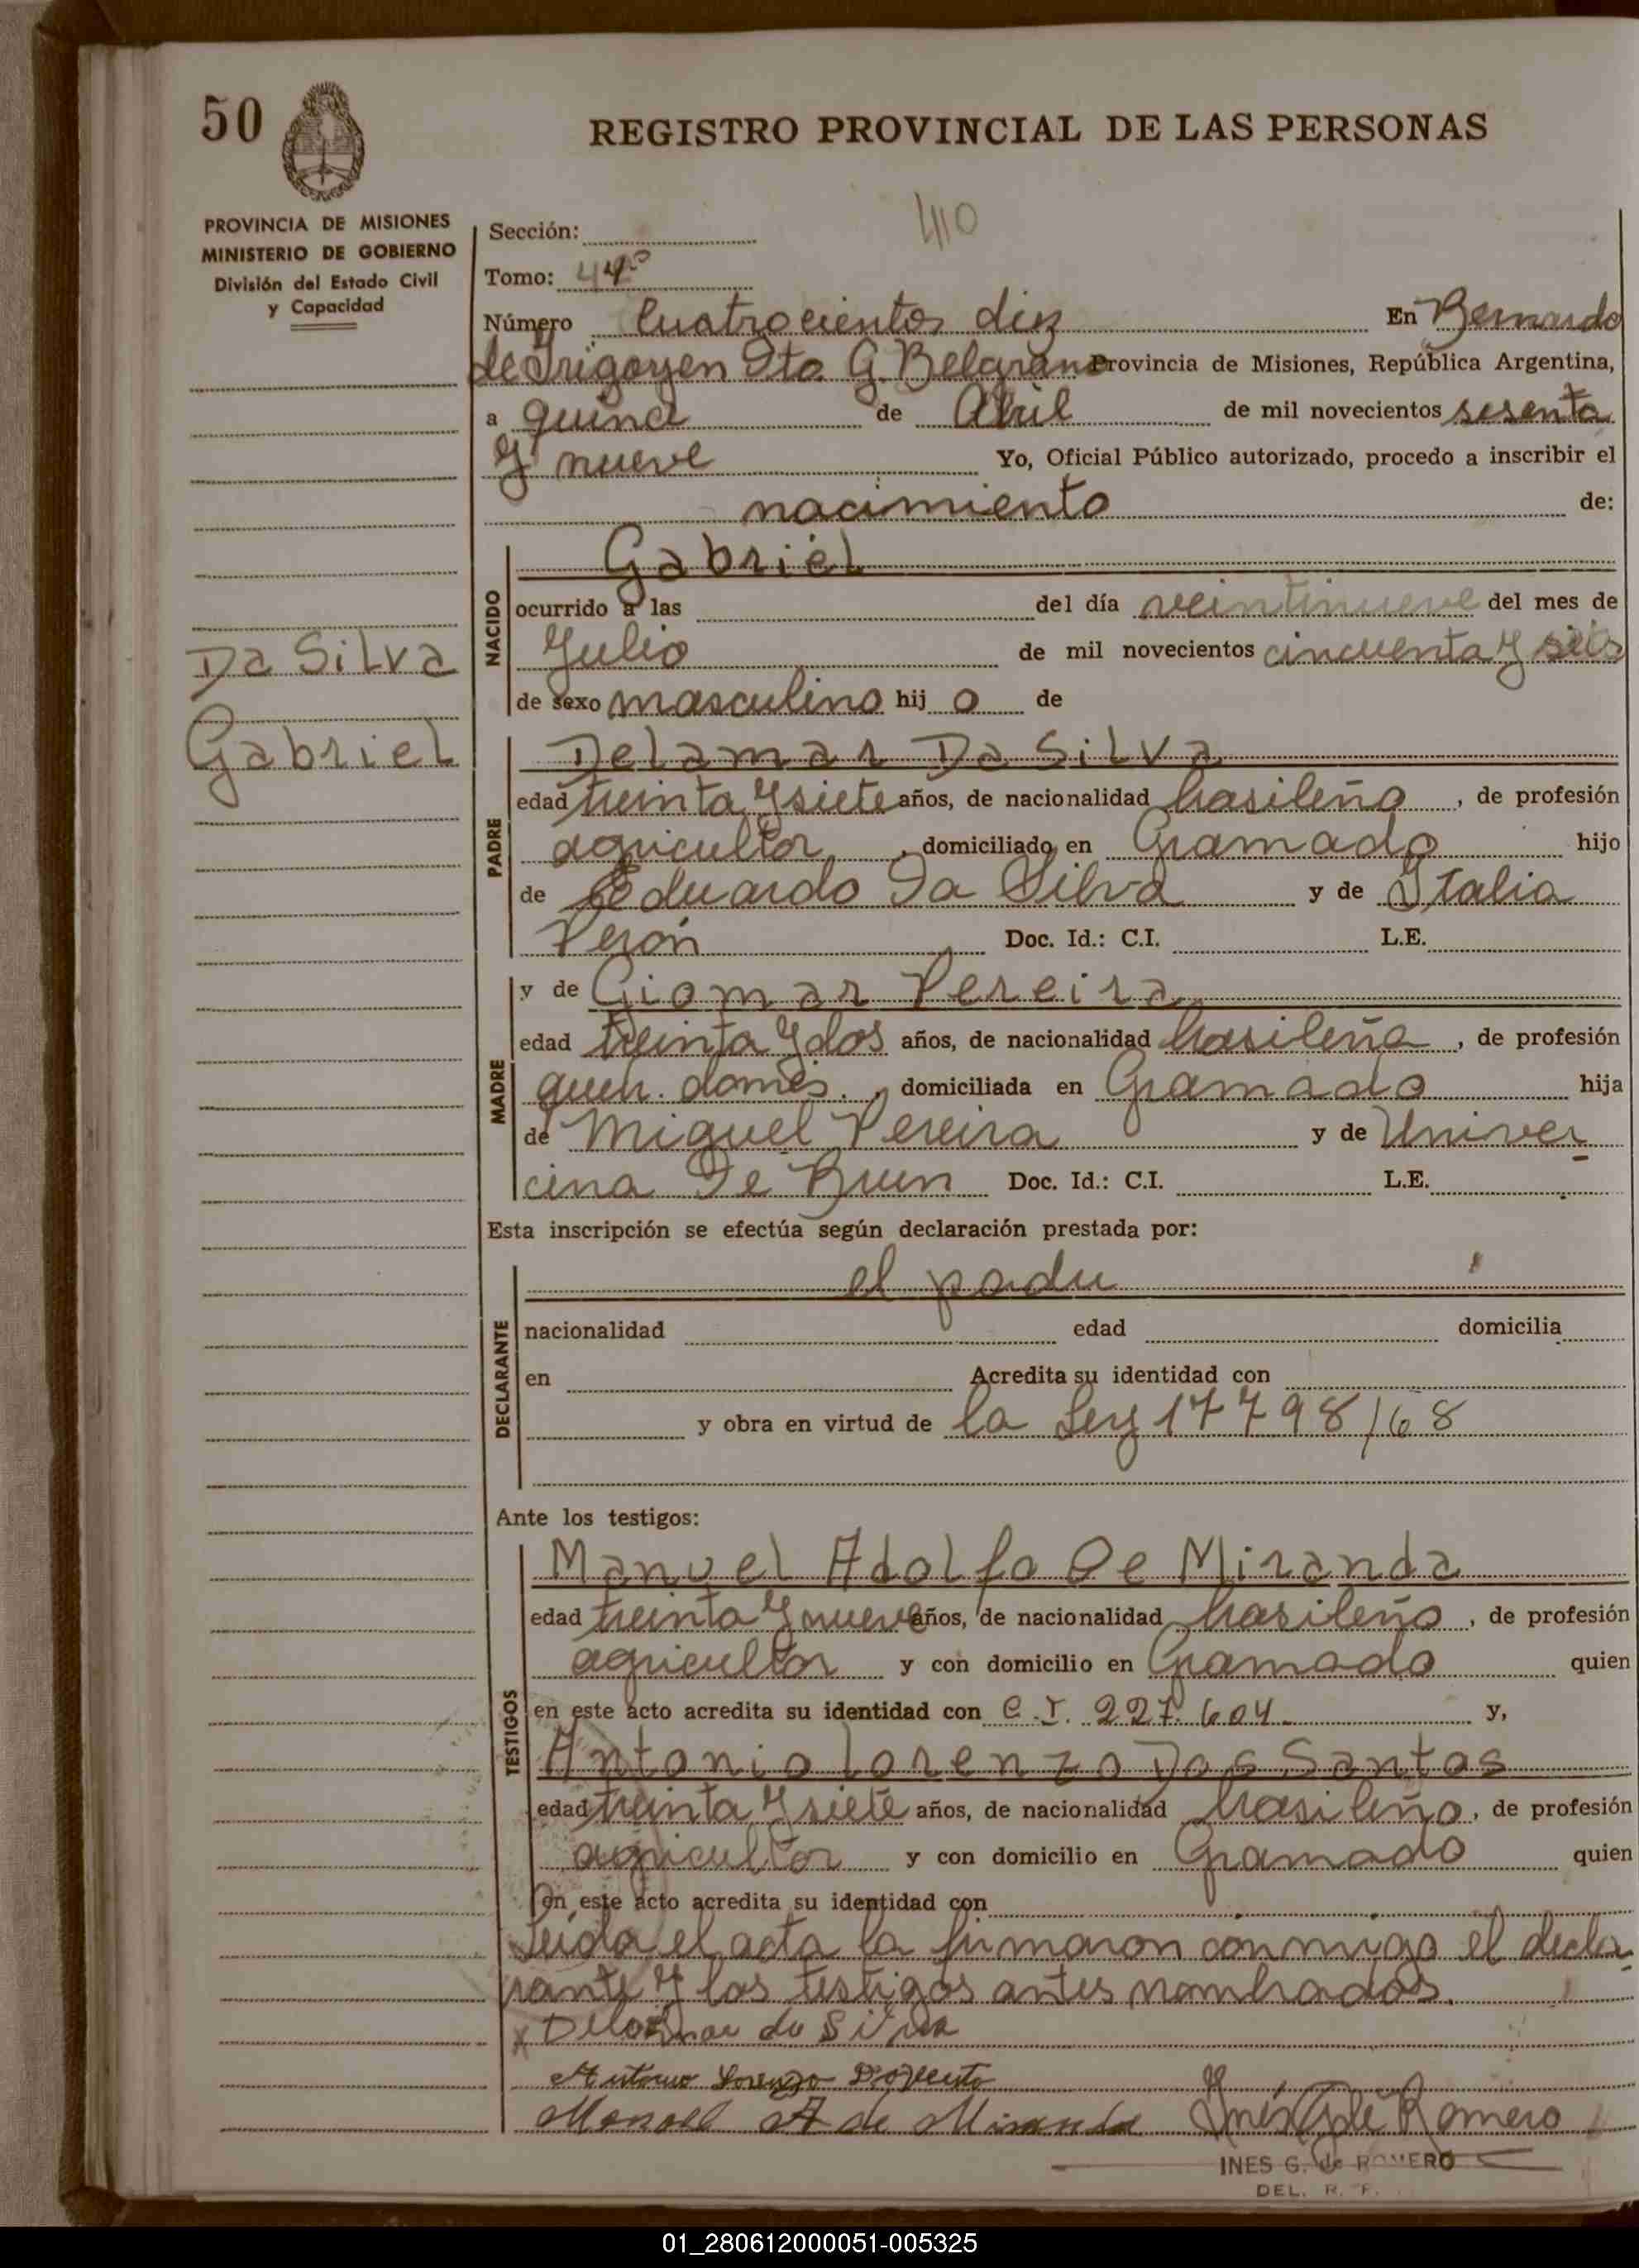 50
REGISTRO PROVINCIAL DE LAS PERSONAS
PROVINCIA DE MISIONES
MINISTERIO DE GOBIERNO
División del Estado Civil
y Capacidad
410
Sección:
Tomo: 44º
Número Cuatrocientos diez En Bernardo
de Irigoyen Dto G. Belgrano Provincia de Misiones, República Argentina,
a quince de Abril de mil novecientos sesenta
y nueve Yo, Oficial Público autorizado, procedo a inscribir el
nacimiento de:
Da Silva
Gabriel
NACIDO
Gabriel
ocurrido a las del día veintinueve del mes de
Julio de mil novecientos cincuenta y seis
de sexo masculino hij o de
PADRE
Delamar Da Silva
edad treinta y siete años, de nacionalidad brasileño, de profesión
agricultor, domiciliado en Gramado hijo
de Eduardo Da Silva y de Italia
Perón Doc. Id.: C.I. L.E.
MADRE
y de Giomar Pereira
edad treinta y dos años, de nacionalidad brasileña, de profesión
queh. domés., domiciliada en Gramado hija
de Miguel Pereira y de Univer
cina De Brun Doc. Id.: C.I. L.E.
Esta inscripción se efectúa según declaración prestada por:
DECLARANTE
el padre
nacionalidad edad domicilia
en Acredita su identidad con
y obra en virtud de la Ley 17798/68
Ante los testigos:
TESTIGOS
Manuel Adolfo De Miranda
edad treinta y nueve años, de nacionalidad brasileño, de profesión
agricultor y con domicilio en Gramado quien
en este acto acredita su identidad con C.I. 227.604 y,
Antonio Lorenzo Dos Santos
edad treinta y siete años, de nacionalidad brasileño, de profesión
agricultor y con domicilio en Gramado quien
en este acto acredita su identidad con
Leída el acta la firmaron conmigo el decla
rante y los testigos antes nombrados.
x Delamar da Silva
Antonio Lorenzo
Manoel A de Miranda Inés G de Romero
INES G. de ROMERO
DEL. R. P.
01_280612000051-005325